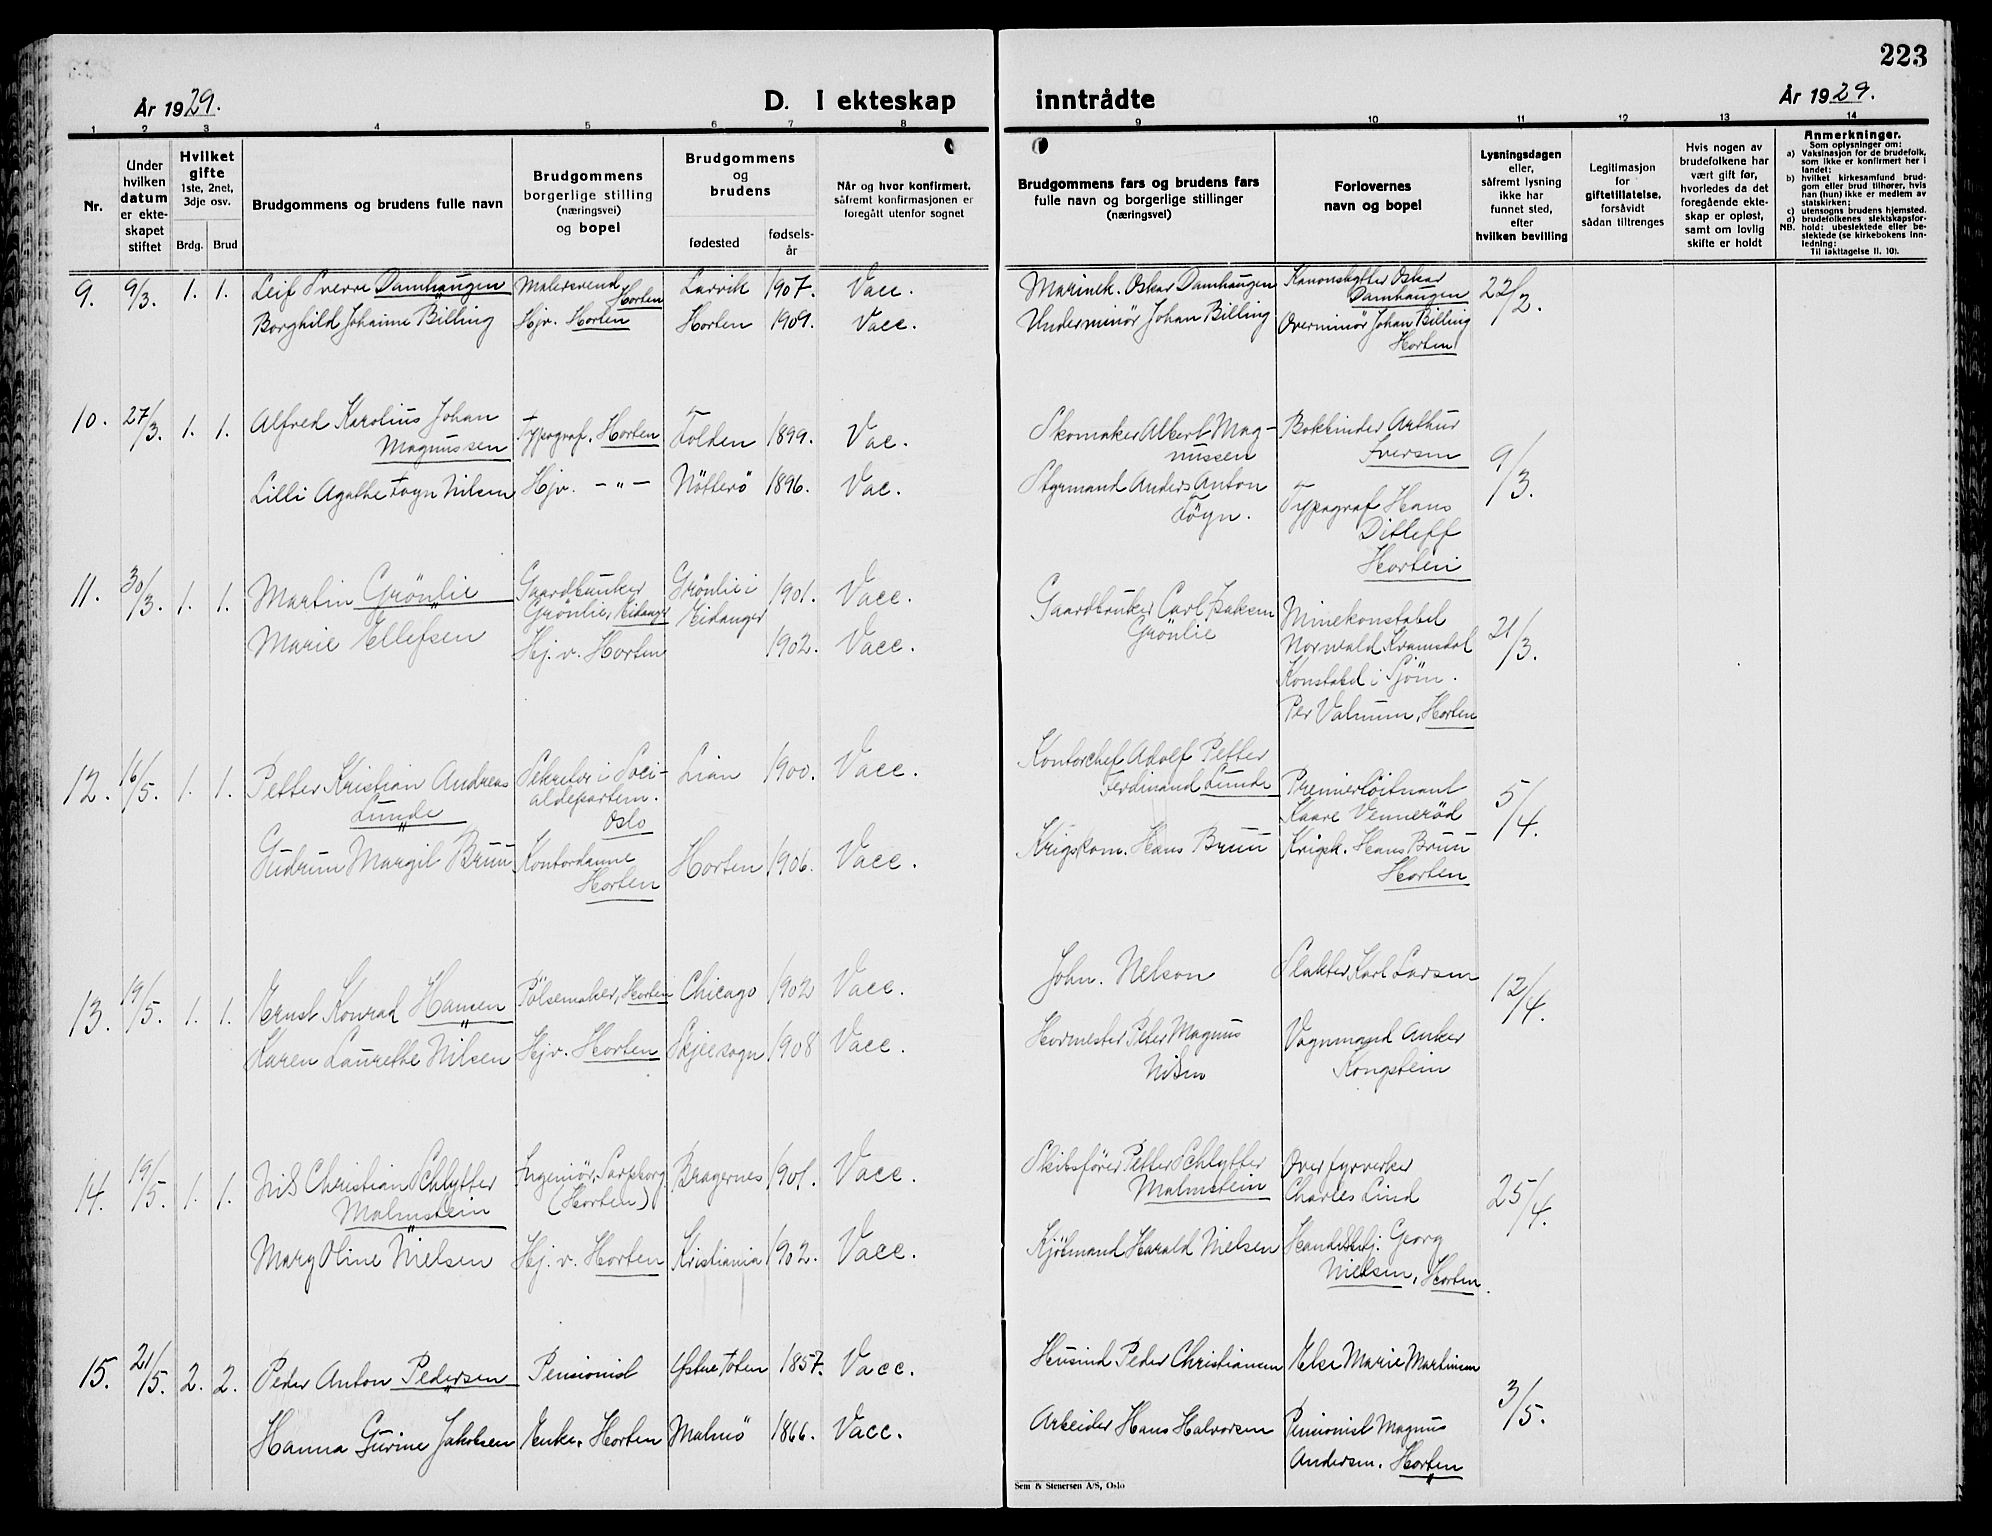 223
År 1929.
D. I ekteskap inntrådte
År 1929.
1 2 3 4 5 6 7 8 9 10 11 12 13 14
Nr.
Under
hvilken
datum
er ekte-
skapet
stiftet
Hvilket
gifte
1ste, 2net,
3dje osv.
Brdg. Brud
Brudgommens og brudens fulle navn
Brudgommens
borgerlige stilling
(næringsvei)
og bopel
Brudgommens
og
brudens
fødested
fødsels-
år
Når og hvor konfirmert,
såfremt konfirmasjonen er
foregått utenfor sognet
Brudgommens fars og brudens fars
fulle navn og borgerlige stillinger
(næringsvei)
Forlovernes
navn og bopel
Lysningsdagen
eller,
såfremt lysning
ikke har
funnet sted,
efter
hvilken bevilling
Legitimasjon
for
giftetillatelse,
forsåvidt
sådan tiltrenges
Hvis nogen av
brudefolkene har
vært gift før,
hvorledes da det
foregående ekte-
skap er opløst,
samt om lovlig
skifte er holdt
Anmerkninger.
Som oplysninger om:
a) Vaksinasjon for de brudefolk,
som ikke er konfirmert her i
landet:
b) hvilket kirkesamfund brud-
gom eller brud tilhører, hvis
han (hun) ikke er medlem av
statskirken;
c) utensogns brudens hjemsted.
d) brudefolkenes slektskapsfor-
NB. hold: ubeslektede eller be-
slektede (se kirkebokens inn-
ledning:
Til iakttagelse II. 10).
9. 9/3. 1. 1. Leif Sverre Damhaugen Malersvend Horten Larvik 1907. Vacc. Marinek. Oskar Damhaugen Kanonskytter Oskar
Damhaugen 22/2.
Borghild Johanne Billing Hjv. Horten Horten 1909. Vacc. Underminør Johan Billing Overminør Johan Billing
Horten
10. 27/3. 1. 1. Alfred Karolius Johan
Magnussen Typograf. Horten Folden 1899. Vac. Skomaker Albert Mag-
nussen Bokbinder Arthur
Iversen 9/3.
Lilli Agathe Fogn Nilsen Hjv. -"- Nötterö 1896. Vac. Styrmand Anders Anton
Fögn. Typograf Hans
Ditleff
Horten
11. 30/3. 1. 1. Martin Grönlie Gaardbruker
Grönlie, Eidanger Grönlie i
Eidanger 1901. Vacc. Gaardbruker Carl Isaksen
Grönlie Minekonstabel
Norwald Kvamsdal 21/3.
Marie Ellefsen Hj. v. Horten 1902. Vacc. Konstabel i Sjöm.
Per Valmum, Horten
12. 16/5. 1. 1. Petter Kristian Andreas
Lunde Sekretær i Soci-
aldepartem.
Oslo Lian 1900. Vacc. Kontorchef Adolf Petter
Ferdinand Lunde Premierlöitnant
Kaare Vennerød 5/4.
Gudrun Margit Bruu Kontordame
Horten Horten 1906. Vacc. Krigskom. Hans Bruu Krigsk. Hans Bruu
Horten
13. 19/5. 1. 1. Ernst Konrad Hansen Pölsemaker, Horten Chicago 1902 Vacc. John. Nelson Slakter Karl Larsen 12/4.
Karen Laurethe Nilsen Hjv. Horten Skjeesogn 1908 Vacc. Havnemester Peter Magnus
Nilsen Vognmand Anker
Kongstein
14. 19/5. 1. 1. Nils Christian Schlytter
Malmstein Ingeniør, Sarpsborg
(Horten) Bragernes 1901. Vacc. Skibsfører Petter Schlytter
Malmstein Overfyrverker
Charles Lind 25/4.
Mary Oline Nielsen Hj. v. Horten Kristiania 1902. Vacc. Kjötmand Harald Nielsen Handelsbetj. Georg
Nielsen, Horten.
15. 21/5. 2. 2. Peder Anton Pedersen Pensionist Østre Toten 1857. Vacc. Husind Peder Christiansen Else Marie Martinsen 3/5.
Hanna Gurine Jakobsen Enke. Horten Malmö 1866. Vacc. Arbeider Hans Halvorsen Pensionist Magnus
Andersen. Horten
Sem & Stenersen A/S, Oslo